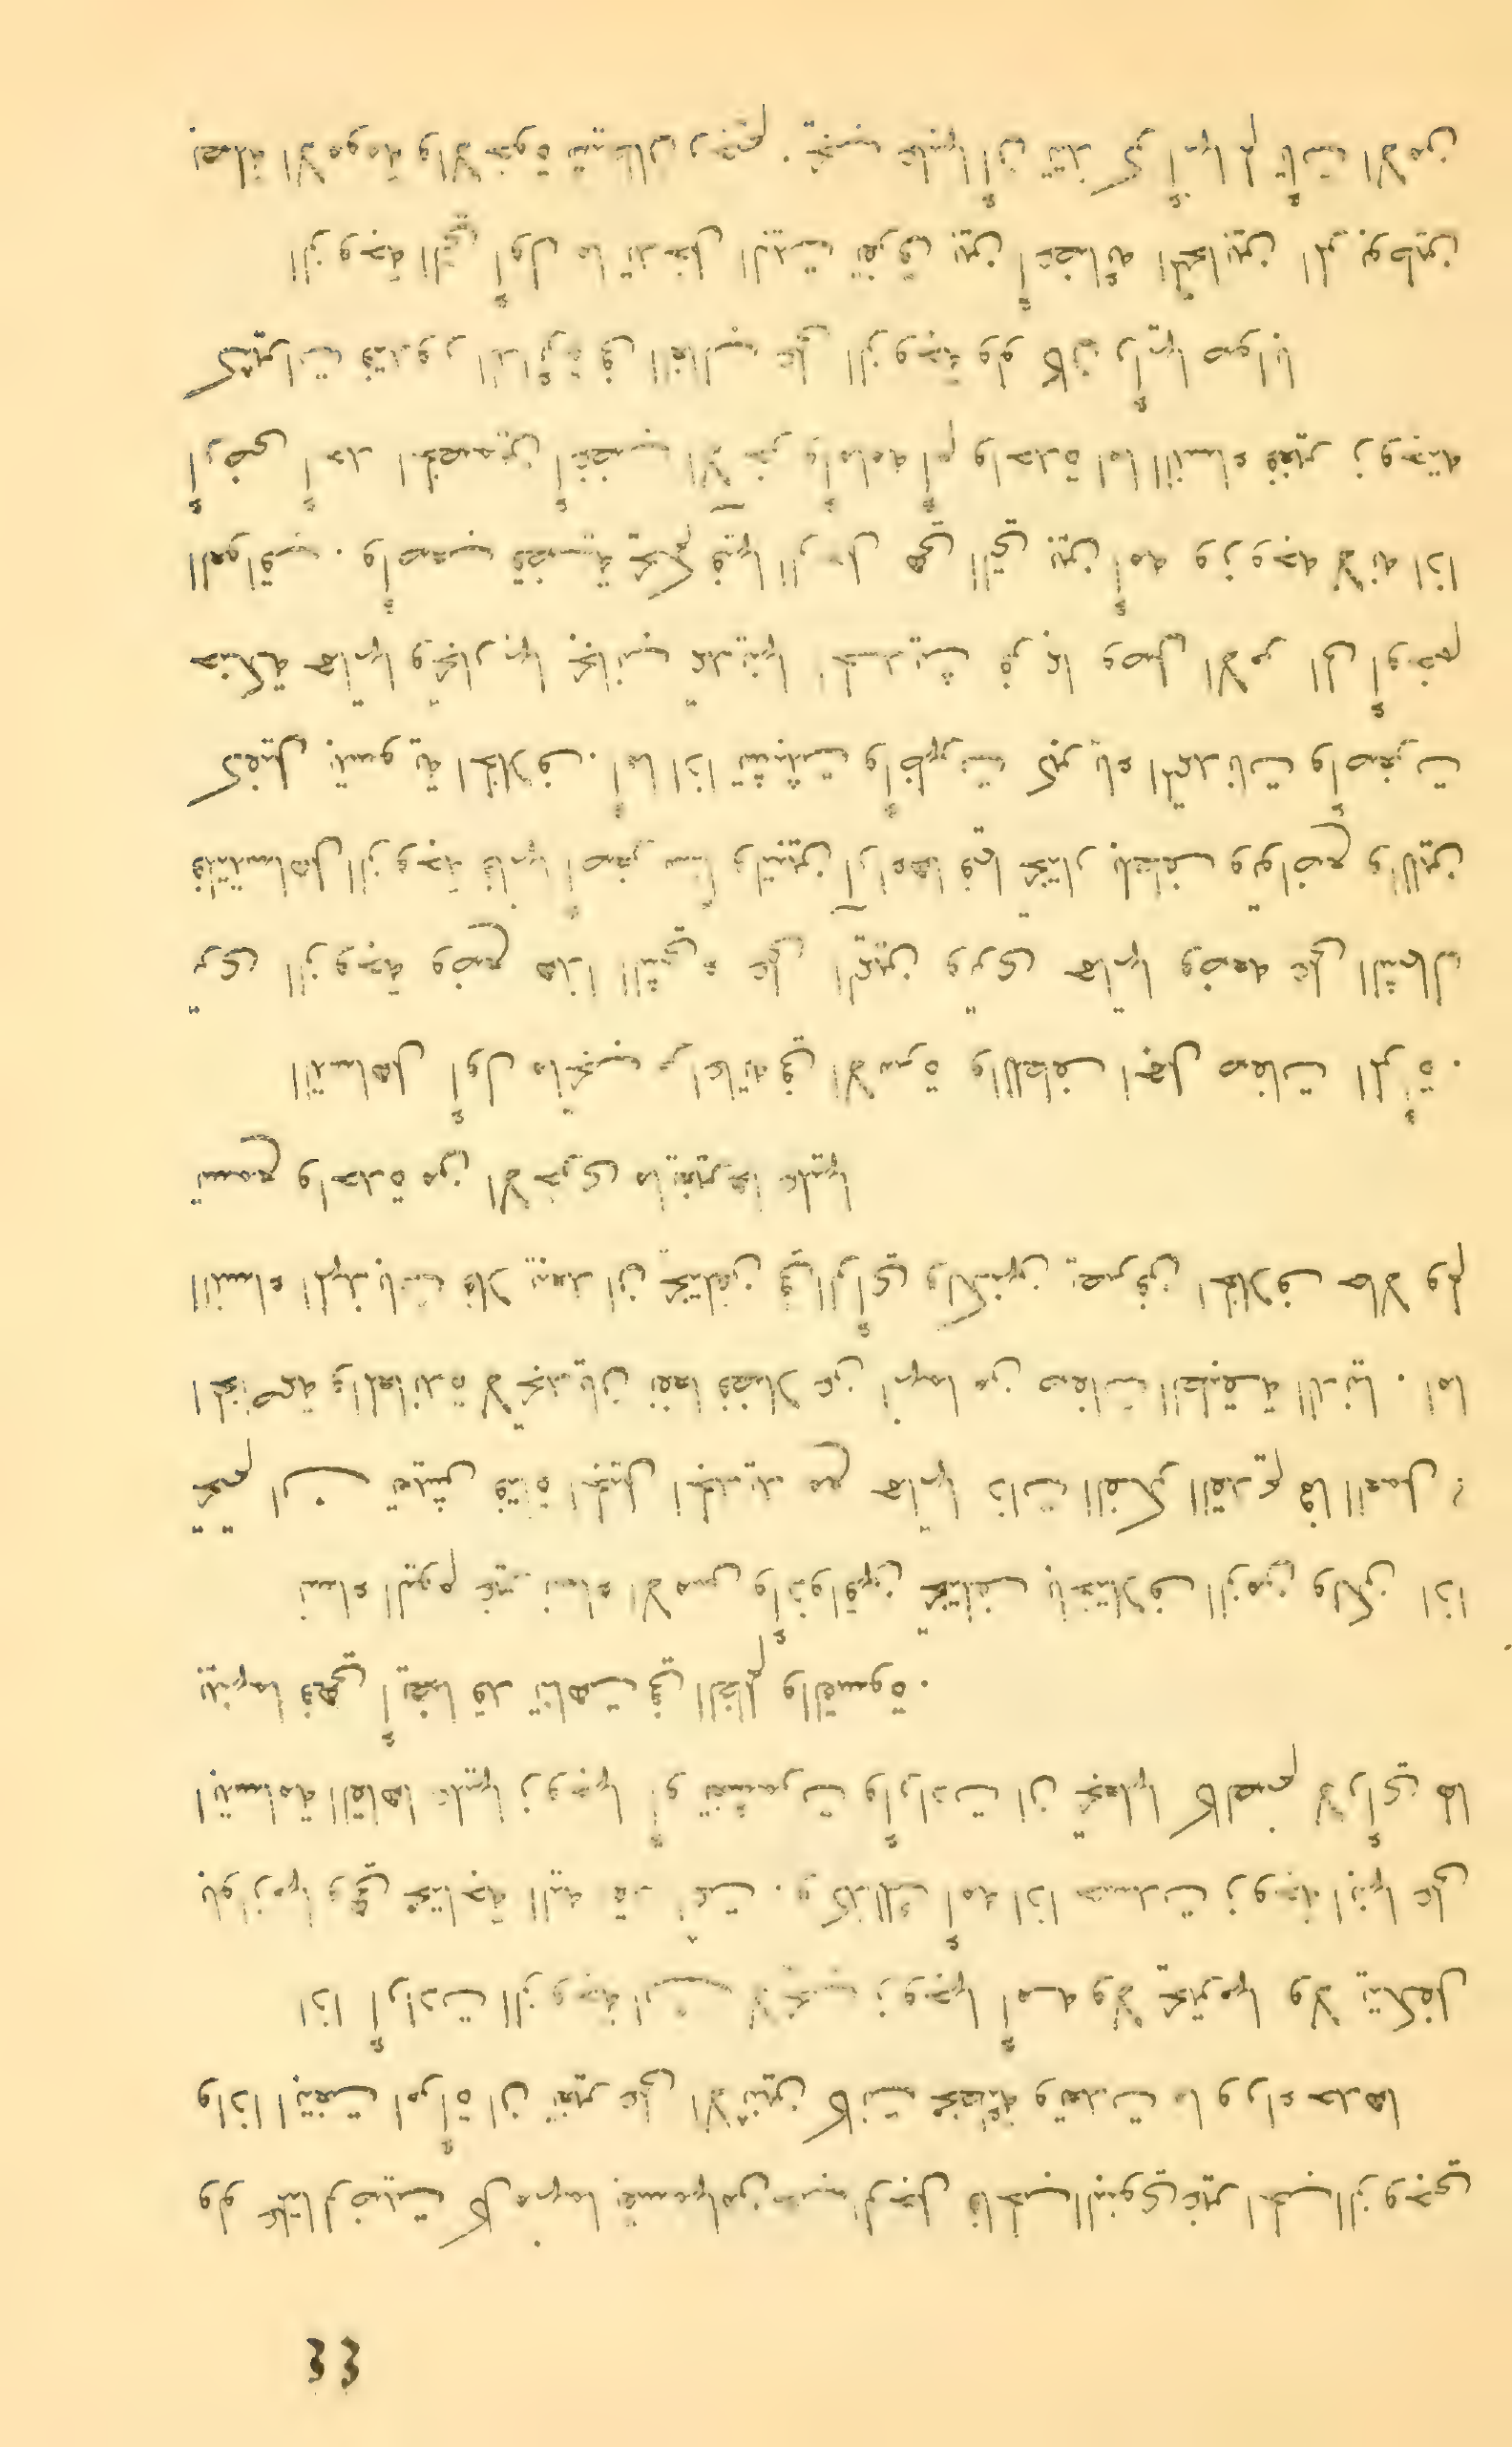 ٤٤
ولو علمتا لرضيت كل منهما بقسمها من حب الرجل فالحب البنوي غير الحب الزوجي
واذا ابتغت امرأة ان تغير على الاثنين كانت مخطئة وتعدت ما وراء حدها
اذا أرادت الزوجة ان لا يحب زوجها أمه ولا يحترمها ولا يتكفل
بلوازمها وهي محتاجة اليه فقد بغت . وكذلك أمه اذا حسدت زوجة ابنها على
ابتسامة القاها عليها زوجها أو تنمرت وأرادت ان تجعلها كالصنم لا رأي لها
بينهما فهي أيضا قد تناهت في الظلم والقسوة .
نساء اليوم غير نساء الامس وأذواقهن تختلف باختلاف الزمن ولكن اذا
تحتم ان تعيش فتاة الجيل الجديد مع حماتها ذات الفكر القديم فما العمل ؟
المخاصمة والمعاندة لا تجديان نفعا فضلا عن انهما من صفات الطبقة الدنيا . اما
النساء المهذبات فلا بعد ان يختلفن في الرأي ولكنهن يصرفن الخلاف حالا ولم
تسمع واحدة من الاخرى ما يغيرها عليها
التساهل أول ما تجب مراعاته في الاسرة واللطف أجمل صفات المرأة .
ترى الزوجة وضع هذا الشيء على اليمين وترى حماتها وضعه على الشمال
فلتتساهل الزوجة فانها أصغر سنا ولتبين آراءها فيما تختار بلطف وتواضع واللين
كفيل بتسوية الخلاف . أما اذا تشبثت وأظهرت كبرياء المحدثات وأصغرت
حنكة حماتها وتجاربها بجانب مدنيتها الحديثة فربما وصل الامر الى أوخم
العواقب . وأصعب قضية يحكم فيها الرجل هي التي بين أمه وزوجه لانه اذا
أرضى أحد الخصمين أغضب الآخر وأمامه أم واحدة اما النساء فغير زوجته
كثيرات وتدور الدائرة في الغالب على الزوجة ولو كان رأيها صوابا
الزوجة التي أول ما تدخل البيت تفرق بين أعضائه المتحابين المربوطين
بصلة الامومة والاخوة شيطان رجيم . يجب عليها أن تتذكر أنها لم تأت الا من